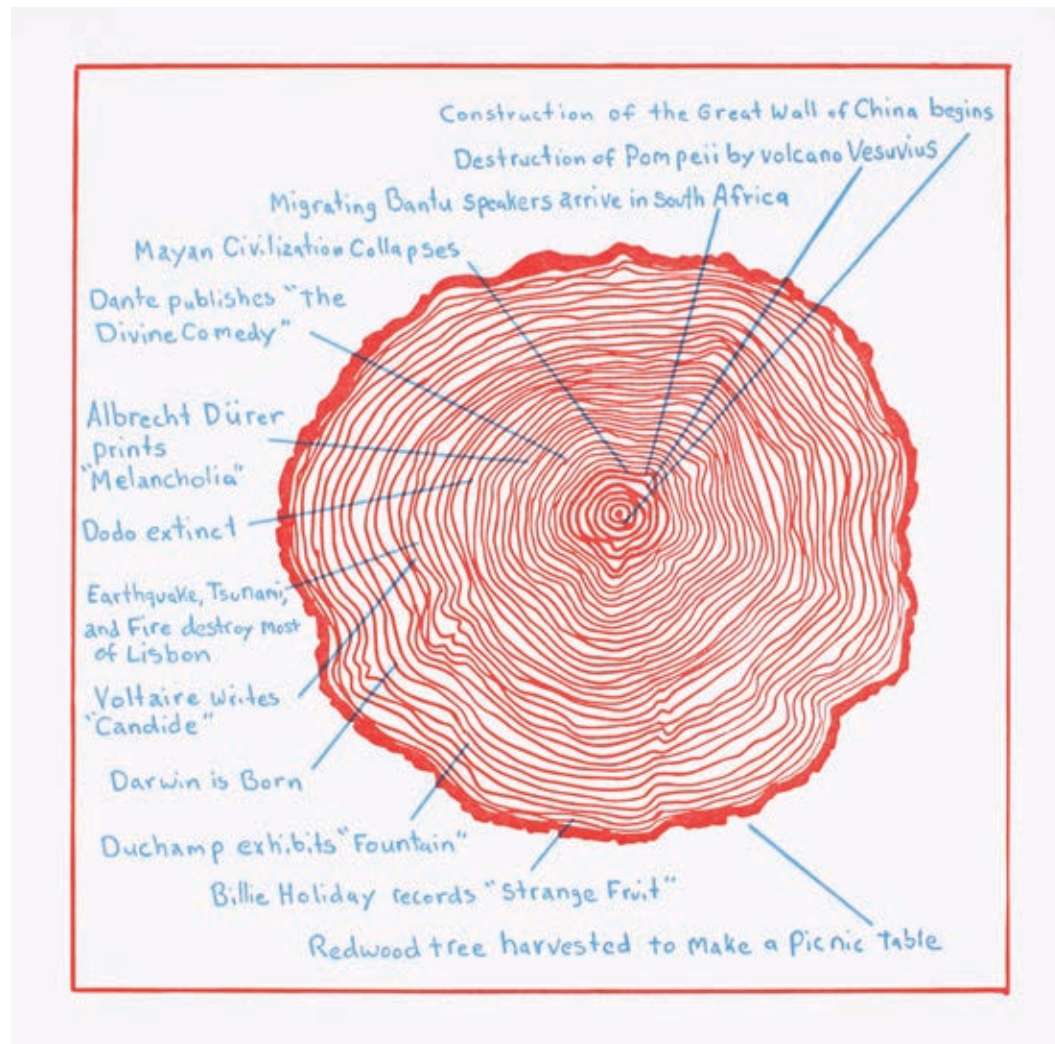 Construction of the Great Wall of China begins
Destruction of Pompeii by volcano Vesuvius
Migrating Bantu speakers arrive in South Africa
Mayan Civilization Collapses
Dante publishes "The
Divine Comedy"
Albrecht Dürer
prints
"Melancholia"
Dodo extinct
Earthquake, Tsunami,
and Fire destroy most
of Lisbon
Voltaire writes
"Candide"
Darwin is Born
Duchamp exhibits "Fountain"
Billie Holiday records "Strange Fruit"
Redwood tree harvested to make a Picnic Table